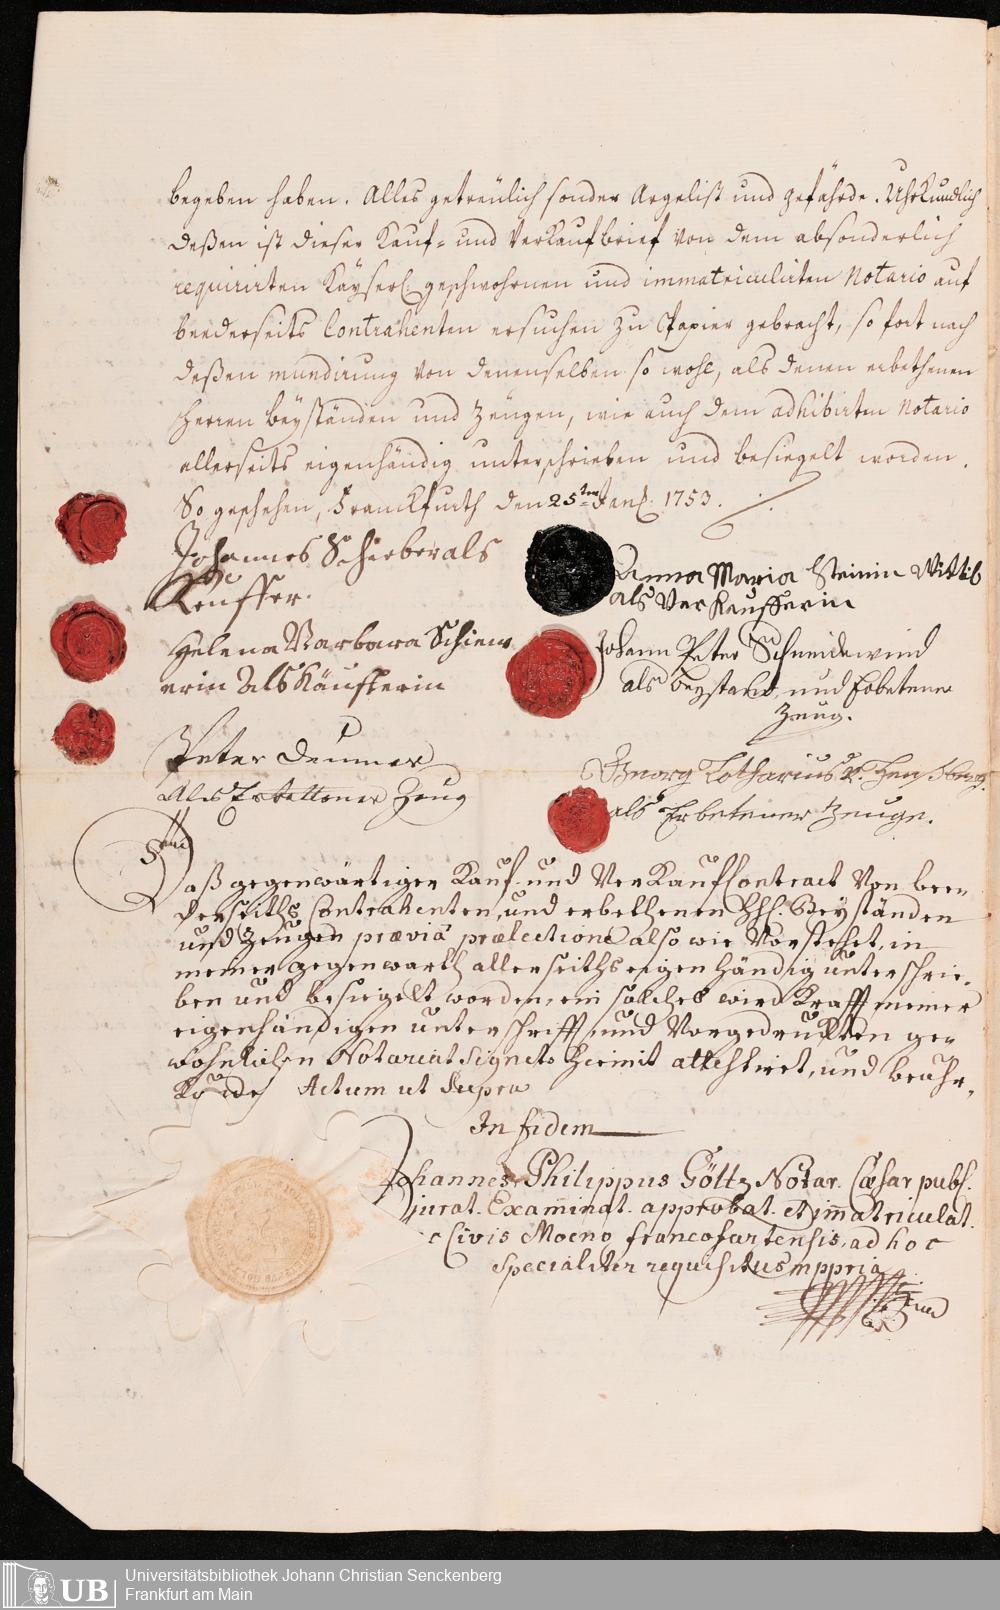 begeben haben. Alles getreülich sonder Argelist und gefährde. Uhrkundlich
deßen ist dieser Kauf- und Verkaufbrief von dem absonderlich
requirirten Käyserl: geschwohrnen und immatriculirten Notario auf
beederseits Contrahenten ersuchen zu Papier gebracht, so fort nach
deßen mundirung von denenselben so wohl, als denen erbethenen
Herren beyständen und Zeügen, wie auch dem adhibirten Notario
allerseits eigenhändig unterschrieben und besiegelt worden.
So geschehen, Franckfurth den 25ten Jan: 1753.
Johannes Schieber als
Keuffer.
Helena Barbara Schiew
erin Als Käufferin
Peter Deumer
Als Erbettener Zeug
Anna Maria Steinin Wittib
als Verkeufferin
Johann Peter Schneidewind
als beystand und Erbetener
Zeug.
Georg Lotharius
als Erbetener Zeuge.
Daß gegenwärtiger Kauf- und VerKaufContract Von beer-
derseiths Contrahenten, und erbethenen HH. Beyständen
und Zeugen prævia prælectione also wie Vorstehet, in
meiner gegenwarth allerseiths eigenhändig unterschrie-
ben und besiegelt worden, ein solches wird Krafft meiner
eigenhändigen unterschrifft, und Vorgedruckten ge-
wöhnlichen Notariat Signets hiermit attestiret, und beuhr-
Kundet Actum ut Supra
In fidem
Johannes Philippus Göltz Notar. Cæsar. publ.
jurat. Examinat. approbat. et immatriculat.
Civis Moeno francofurtensis, ad hoc
specialiter requisitus mppria
UB
Universitätsbibliothek Johann Christian Senckenberg
Frankfurt am Main